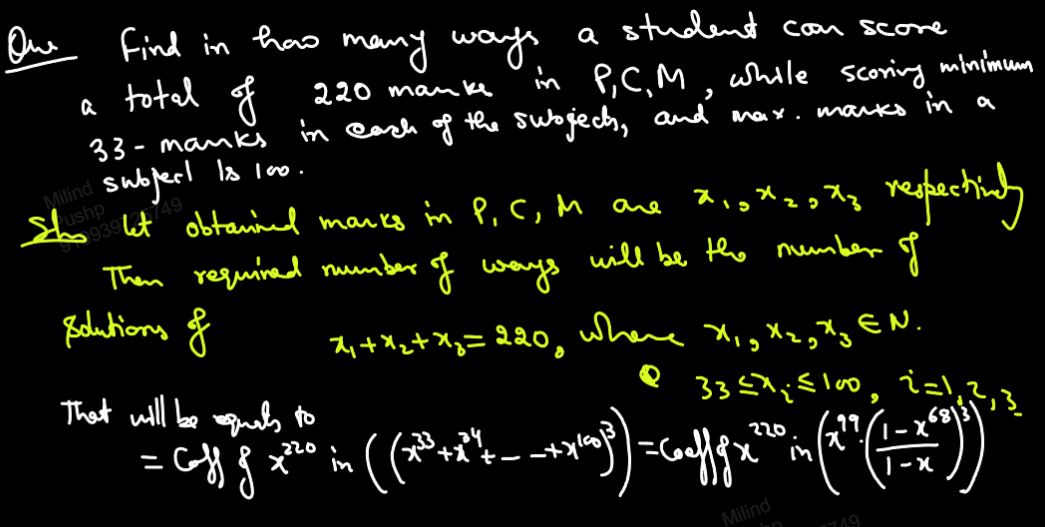 Que Find in how many ways a student can score
a total of 220 marks in P, C, M, while scoring minimum
33 - marks in each of the subjects, and max. marks in a
subject is 100.
Sol let obtained marks in P, C, M are x₁, x₂, x₃ respectively
Then required number of ways will be the number of
solutions of
x₁+x₂+x₃ = 220, where x₁, x₂, x₃ ∈ N.
33 ≤ xᵢ ≤ 100, i=1,2,3
That will be equals to
= Coff of x²²⁰ in ((x³³+x³⁴+ - - +x¹⁰⁰)³) = Coeff of x²²⁰ in (x⁹⁹.((1-x⁶⁸)/(1-x))³)
Milind
Pushp
Milind